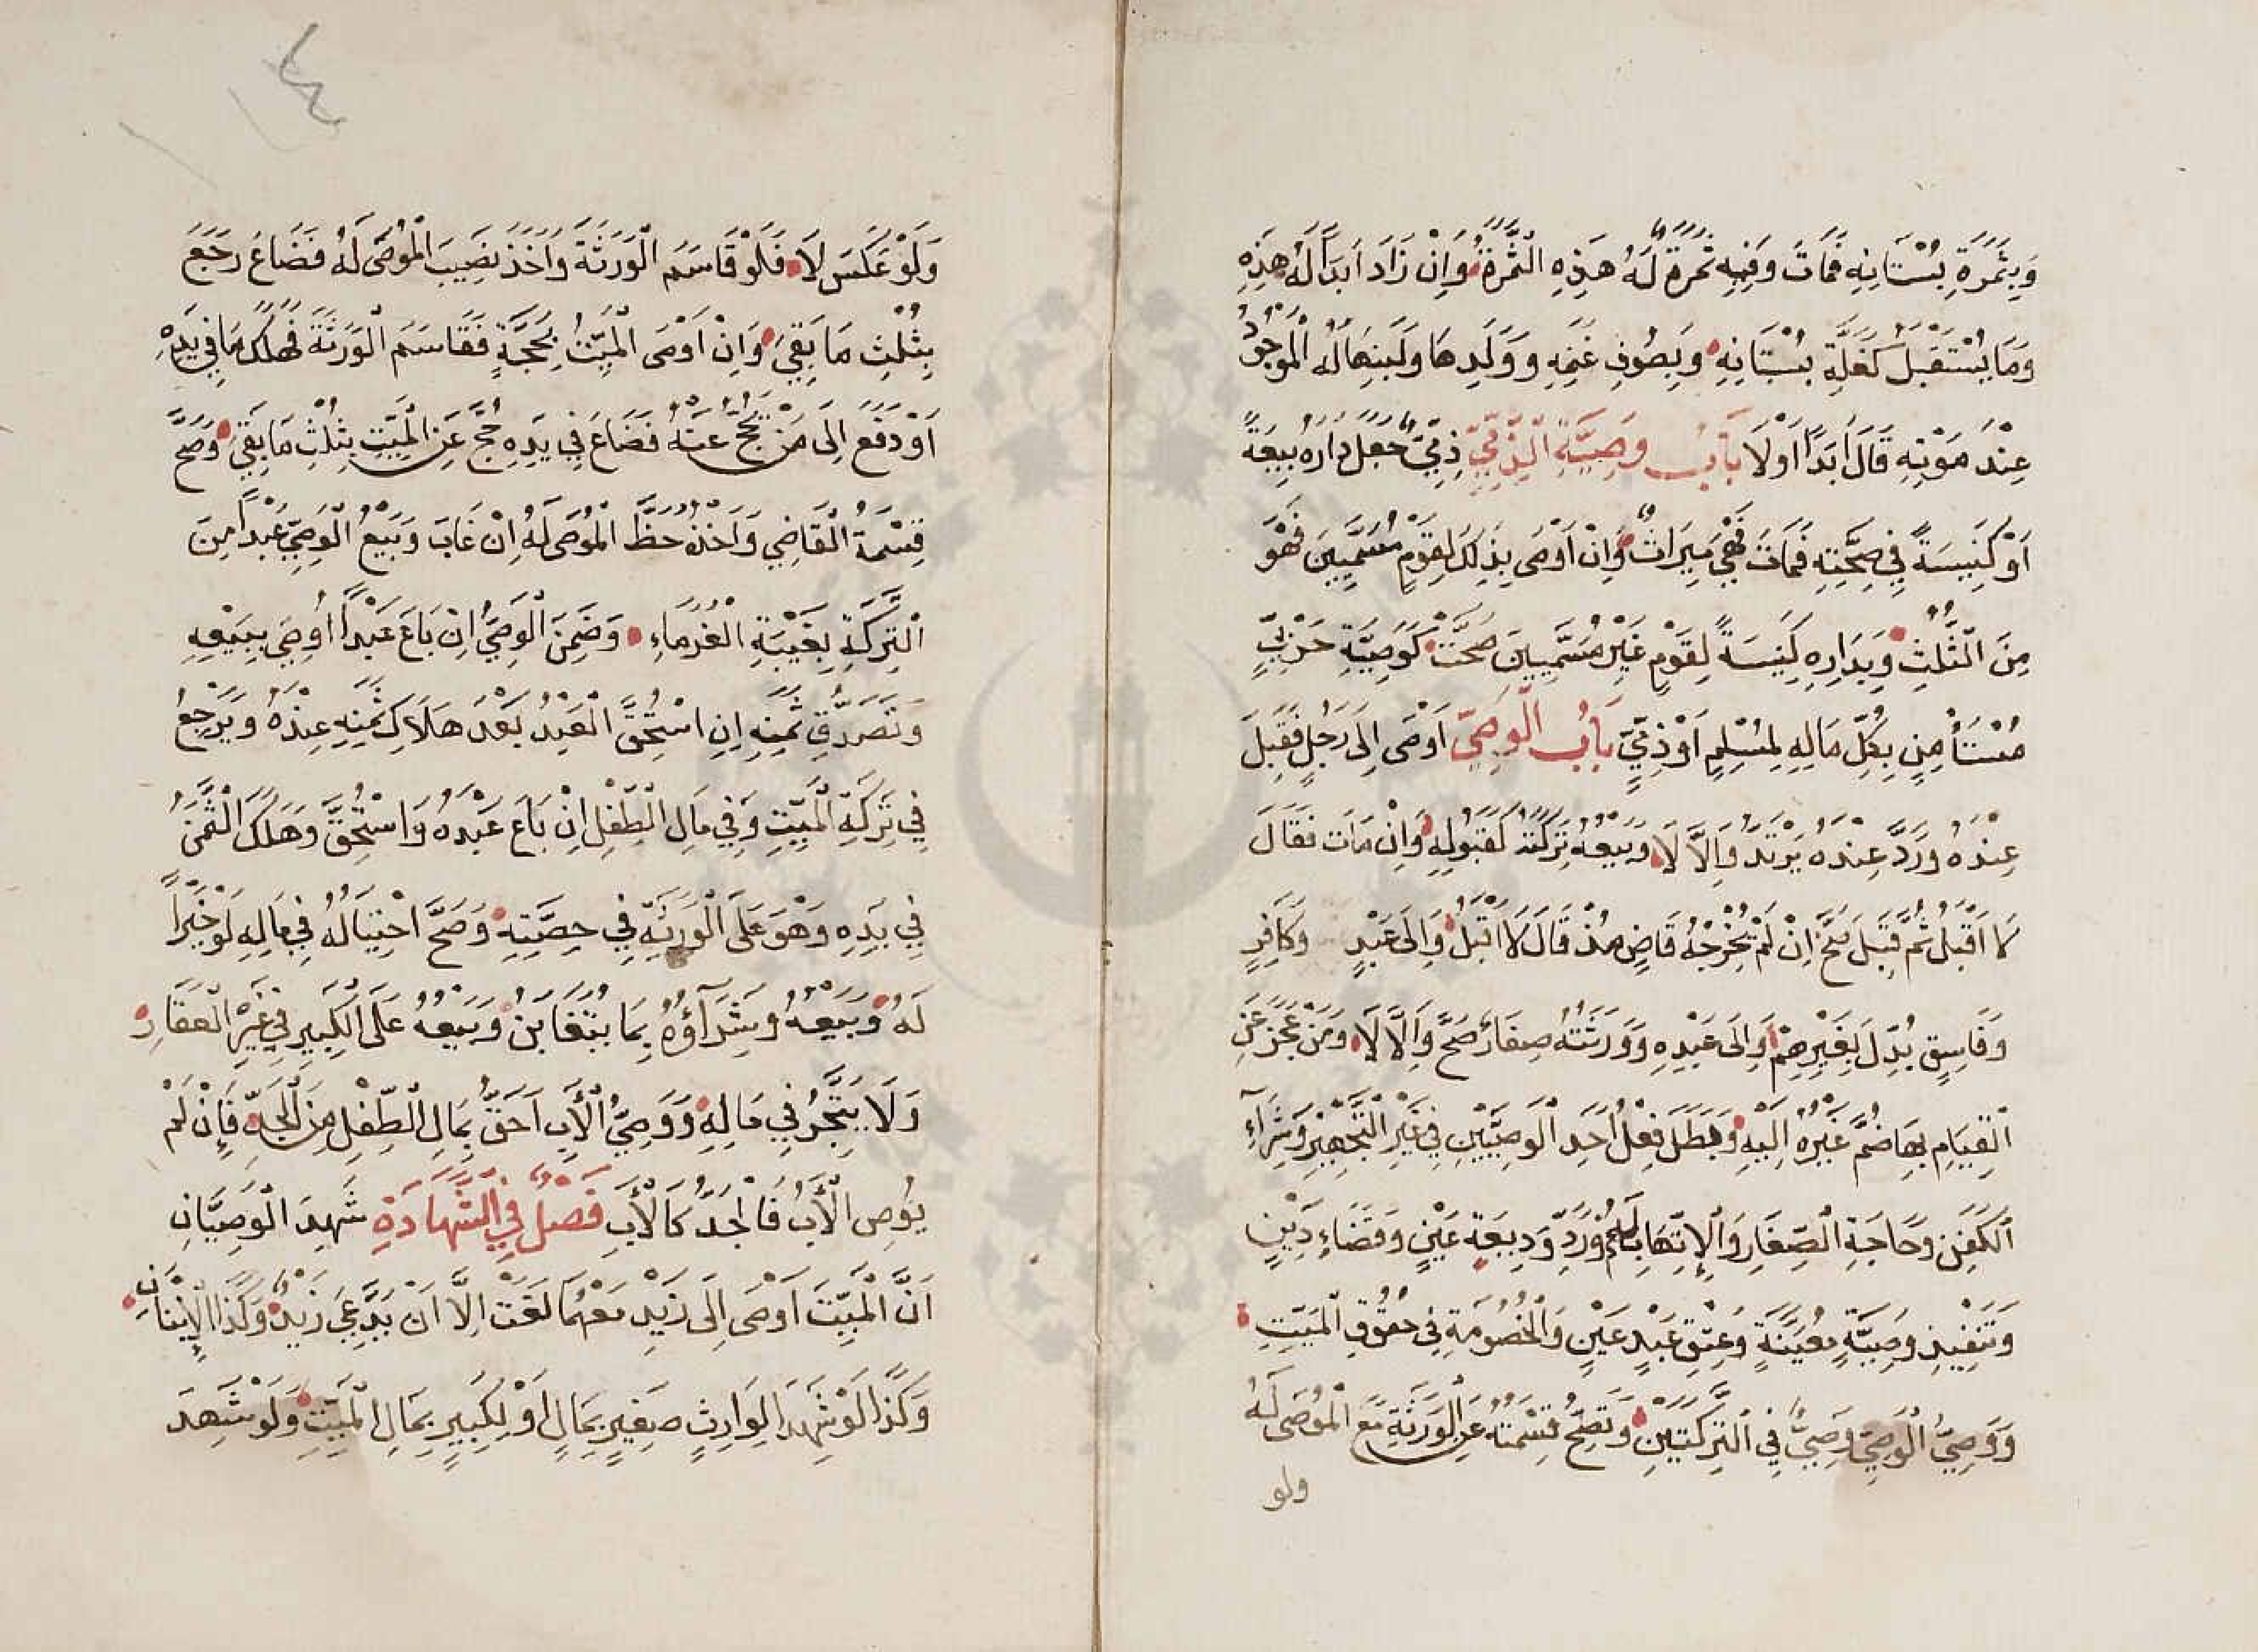 وَبِثَمَرَةِ بُسْتَانِهِ فَمَاتَ وَفِيهِ ثَمَرَةٌ لَهُ هَذِهِ الثَّمَرَةُ وَاِنْ زَادَ اَبَدًا لَهُ هَذِهِ
وَمَا يُسْتَقْبَلُ كَغَلَّةِ بُسْتَانِهِ وَبِصُوفِ غَنَمِهِ وَوَلَدِهَا وَلَبَنِهَا لَهُ الْمَوْجُودُ
عِنْدَ مَوْتِهِ قَالَ اَبَدًا اَوْ لَا بَابُ وَصِيَّةِ الذِّمِّيِّ ذِمِّيٌّ جَعَلَ دَارَهُ بِيعَةً
اَوْ كَنِيسَةً فِي صِحَّتِهِ فَمَاتَ فَهِيَ مِيرَاثٌ وَاِنْ اَوْصَى بِذَلِكَ لِقَوْمٍ مُسَمَّيِينَ فَهُوَ
مِنَ الثُّلُثِ وَبِدَارِهِ كَنِيسَةً لِقَوْمٍ غَيْرِ مُسَمَّيِينَ صَحَّتْ كَوَصِيَّةِ حَرْبِيٍّ
مُسْتَأْمِنٍ بِكُلِّ مَالِهِ لِمُسْلِمٍ اَوْ ذِمِّيٍّ بَابُ الْوَصِيِّ اَوْصَى اِلَى رَجُلٍ فَقَبِلَ
عِنْدَهُ وَرَدَّ عِنْدَهُ يَرْتَدُّ وَاِلَّا لَا وَبَيْعُهُ تَرِكَتَهُ كَقَبُولِهِ وَاِنْ مَاتَ فَقَالَ
لَا اَقْبَلُ ثُمَّ قَبِلَ صَحَّ اِنْ لَمْ يُخْرِجْهُ قَاضٍ مُنْذُ قَالَ لَا اَقْبَلُ وَاِلَى عَبْدٍ وَكَافِرٍ
وَفَاسِقٍ بُدِّلَ بِغَيْرِهِمْ وَاِلَى عَبْدِهِ وَوَرَثَتُهُ صِغَارٌ صَحَّ وَاِلَّا لَا وَمَنْ عَجَزَ عَنِ
الْقِيَامِ بِهَا ضُمَّ غَيْرُهُ اِلَيْهِ وَبَطَلَ فِعْلُ اَحَدِ الْوَصِيَّيْنِ فِي غَيْرِ التَّجْهِيزِ وَشِرَآءِ
الْكَفَنِ وَحَاجَةِ الصِّغَارِ وَالْاِتِّهَابِ لَهُمْ وَرَدِّ وَدِيعَةِ عَيْنٍ وَقَضَاءِ دَيْنٍ
وَتَنْفِيذِ وَصِيَّةٍ مُعَيَّنَةٍ وَعِتْقِ عَبْدِ عَيْنٍ وَالْخُصُومَةِ فِي حُقُوقِ الْمَيِّتِ
وَوَصِيُّ الْوَصِيِّ وَصِيٌّ فِي التَّرِكَتَيْنِ وَتَصِحُّ قِسْمَتُهُ عَنِ الْوَرَثَةِ مَعَ الْمُوصَى لَهُ
ولو
وَلَوْ عَكَسَ لَا فَلَوْ قَاسَمَ الْوَرَثَةَ وَاَخَذَ نَصِيبَ الْمُوصَى لَهُ فَضَاعَ رَجَعَ
بِثُلُثِ مَا بَقِيَ وَاِنْ اَوْصَى الْمَيِّتُ بِحَجَّةٍ فَقَاسَمَ الْوَرَثَةَ فَهَلَكَ مَا فِي يَدِهِ
اَوْ دَفَعَ اِلَى مَنْ يَحُجُّ عَنْهُ فَضَاعَ فِي يَدِهِ حُجَّ عَنِ الْمَيِّتِ بِثُلُثِ مَا بَقِيَ وَصَحَّ
قِسْمَةُ الْقَاضِي وَاَخْذُهُ حَظَّ الْمُوصَى لَهُ اِنْ غَابَ وَبَيْعُ الْوَصِيِّ عَبْدًا مِنَ
التَّرِكَةِ بِغَيْبَةِ الْغُرَمَاءِ وَضَمِنَ الْوَصِيُّ اِنْ بَاعَ عَبْدًا اُوصِيَ بِبَيْعِهِ
وَتَصَدُّقِ ثَمَنِهِ اِنِ اسْتُحِقَّ الْعَبْدُ بَعْدَ هَلَاكِ ثَمَنِهِ عِنْدَهُ وَيَرْجِعُ
فِي تَرِكَةِ الْمَيِّتِ وَفِي مَالِ الطِّفْلِ اِنْ بَاعَ عَبْدَهُ وَاسْتُحِقَّ وَهَلَكَ الثَّمَنُ
فِي يَدِهِ وَهُوَ عَلَى الْوَرَثَةِ فِي حِصَّتِهِ وَصَحَّ احْتِيَالُهُ فِي مَالِهِ لَوْ خَيْرًا
لَهُ وَبَيْعُهُ وَشِرَآؤُهُ بِمَا يُتَغَابَنُ وَبَيْعُهُ عَلَى الْكَبِيرِ فِي غَيْرِ الْعَقَارِ
وَلَا يَتَّجِرُ فِي مَالِهِ وَوَصِيُّ الْاَبِ اَحَقُّ بِمَالِ الطِّفْلِ مِنَ الْجَدِّ فَاِنْ لَمْ
يُوصِ الْاَبُ فَالْجَدُّ كَالْاَبِ فَصْلٌ فِي الشَّهَادَةِ شَهِدَ الْوَصِيَّانِ
اَنَّ الْمَيِّتَ اَوْصَى اِلَى زَيْدٍ مَعَهُمَا لَغَتْ اِلَّا اَنْ يَدَّعِيَ زَيْدٌ وَكَذَا الْاِبْنَانِ
وَكَذَا لَوْ شَهِدَا لِوَارِثٍ صَغِيرٍ بِمَالٍ اَوْ لِكَبِيرٍ بِمَالِ الْمَيِّتِ وَلَوْ شَهِدَ